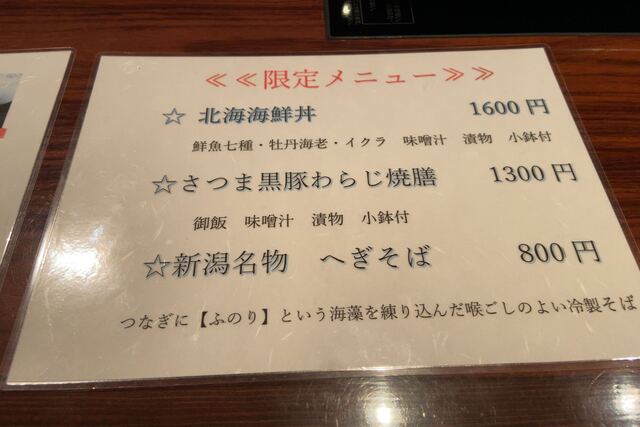 ≪≪限定メニュー≫≫
☆ 北海海鮮丼 1600円
鮮魚七種・牡丹海老・イクラ 味噌汁 漬物 小鉢付
☆さつま黒豚わらじ焼膳 1300円
御飯 味噌汁 漬物 小鉢付
☆新潟名物 へぎそば 800円
つなぎに【ふのり】という海藻を練り込んだ喉ごしのよい冷製そば